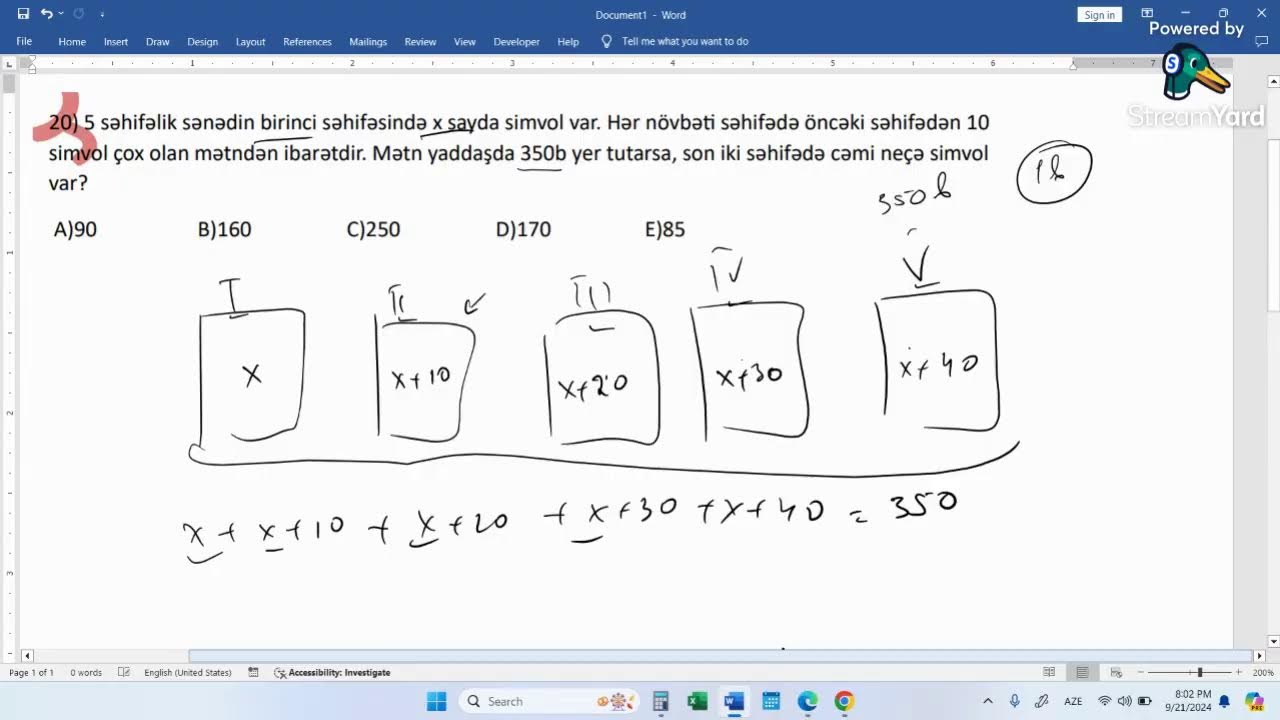 Document1 - Word
Sign in
File Home Insert Draw Design Layout References Mailings Review View Developer Help Tell me what you want to do
Powered by
StreamYard
1 2 3 4 5 6 7
20) 5 səhifəlik sənədin birinci səhifəsində x sayda simvol var. Hər növbəti səhifədə öncəki səhifədən 10
simvol çox olan mətndən ibarətdir. Mətn yaddaşda 350b yer tutarsa, son iki səhifədə cəmi neçə simvol
var?
1b
350b
A)90 B)160 C)250 D)170 E)85
I II III IV V
x x+10 x+20 x+30 x+40
x + x+10 + x+20 + x+30 + x+40 = 350
Page 1 of 1 0 words English (United States) Accessibility: Investigate 200%
Search
AZE
8:02 PM
9/21/2024